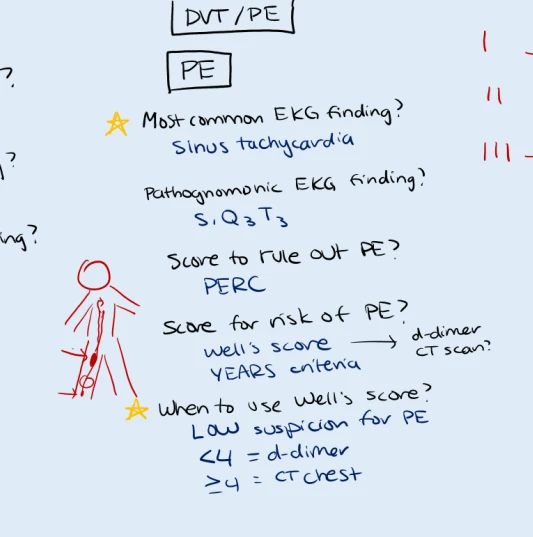 DVT/PE
PE
Most common EKG finding?
Sinus tachycardia
Pathognomonic EKG finding?
S1Q3T3
Score to rule out PE?
PERC
Score for risk of PE?
Well's score → d-dimer
CT scan?
YEARS criteria
When to use Well's score?
Low suspicion for PE
<4 = d-dimer
≥4 = CT chest
?
?
ing?
I
II
III